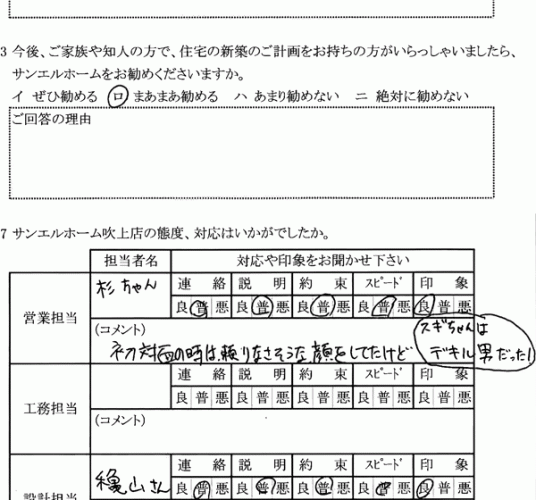 3 今後、ご家族や知人の方で、住宅の新築のご計画をお持ちの方がいらっしゃいましたら、
サンエルホームをお勧めくださいますか。
イ ぜひ勧める ロ まあまあ勧める ハ あまり勧めない ニ 絶対に勧めない
ご回答の理由
7 サンエルホーム吹上店の態度、対応はいかがでしたか。
担当者名 対応や印象をお聞かせ下さい
営業担当 杉ちゃん 連絡 説明 約束 スピード 印象
良 普 悪 良 普 悪 良 普 悪 良 普 悪 良 普 悪
(コメント)
初対面の時は、頼りなさそうな顔をしてたけど
スギちゃんは
デキル男だった!
工務担当 連絡 説明 約束 スピード 印象
良 普 悪 良 普 悪 良 普 悪 良 普 悪 良 普 悪
(コメント)
設計担当 穐山さん 連絡 説明 約束 スピード 印象
良 普 悪 良 普 悪 良 普 悪 良 普 悪 良 普 悪